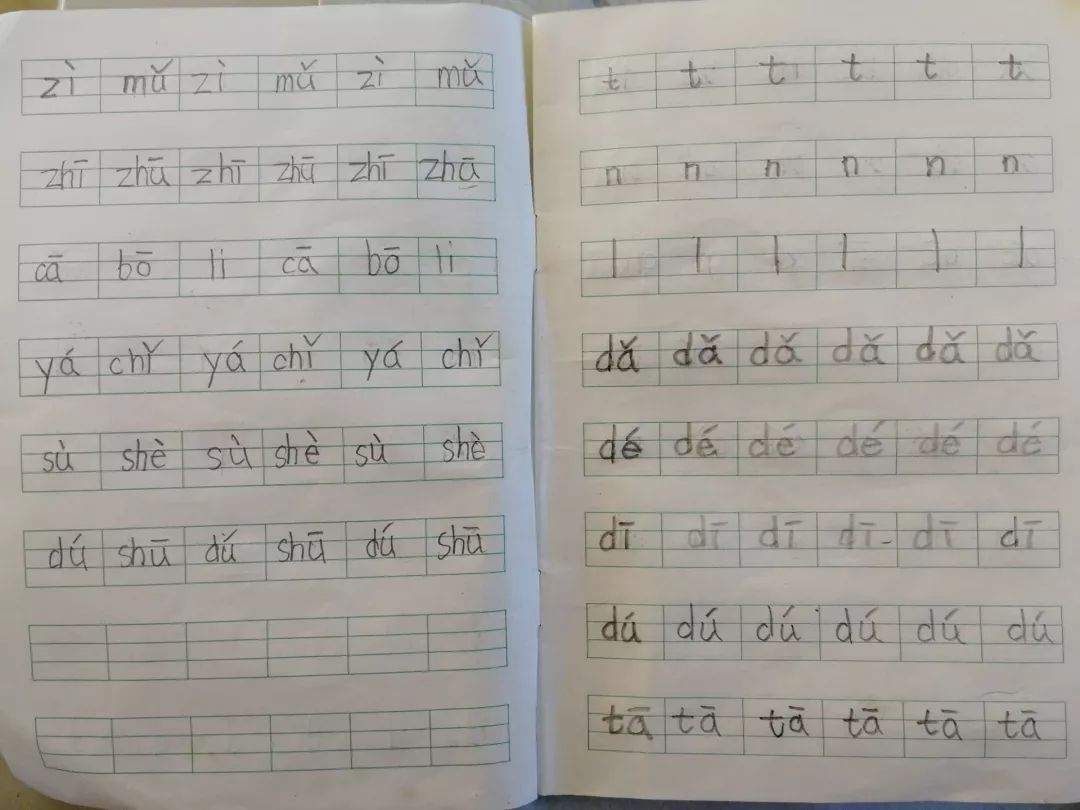 zì mǔ zì mǔ zì mǔ
zhī zhū zhī zhū zhī zhū
cā bō li cā bō li
yá chǐ yá chǐ yá chǐ
sù shè sù shè sù shè
dú shū dú shū dú shū
t t t t t t
n n n n n n
l l l l l l
dǎ dǎ dǎ dǎ dǎ dǎ
dé dé dé dé dé dé
dī dī dī dī dī dī
dú dú dú dú dú dú
tā tā tā tā tā tā